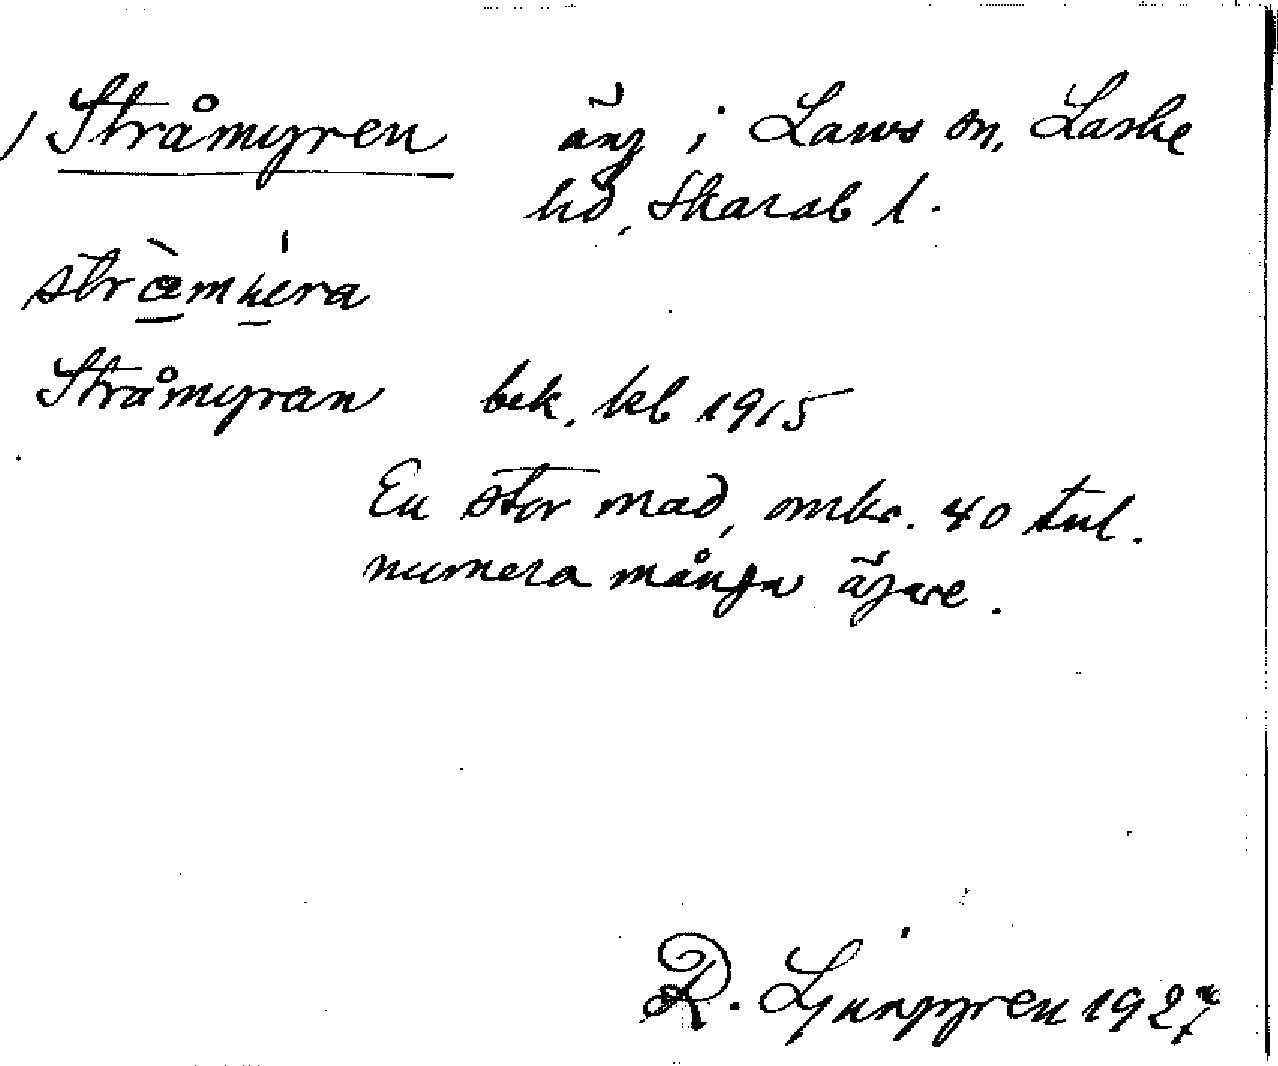 Stråmyren äng i Laws sn, Laske
hd, Skarab l.
Stråmyran bek. kb 1915
En stor mad, omkr. 40 tnl.
numera många ägare.
R. Ljunggren 1927